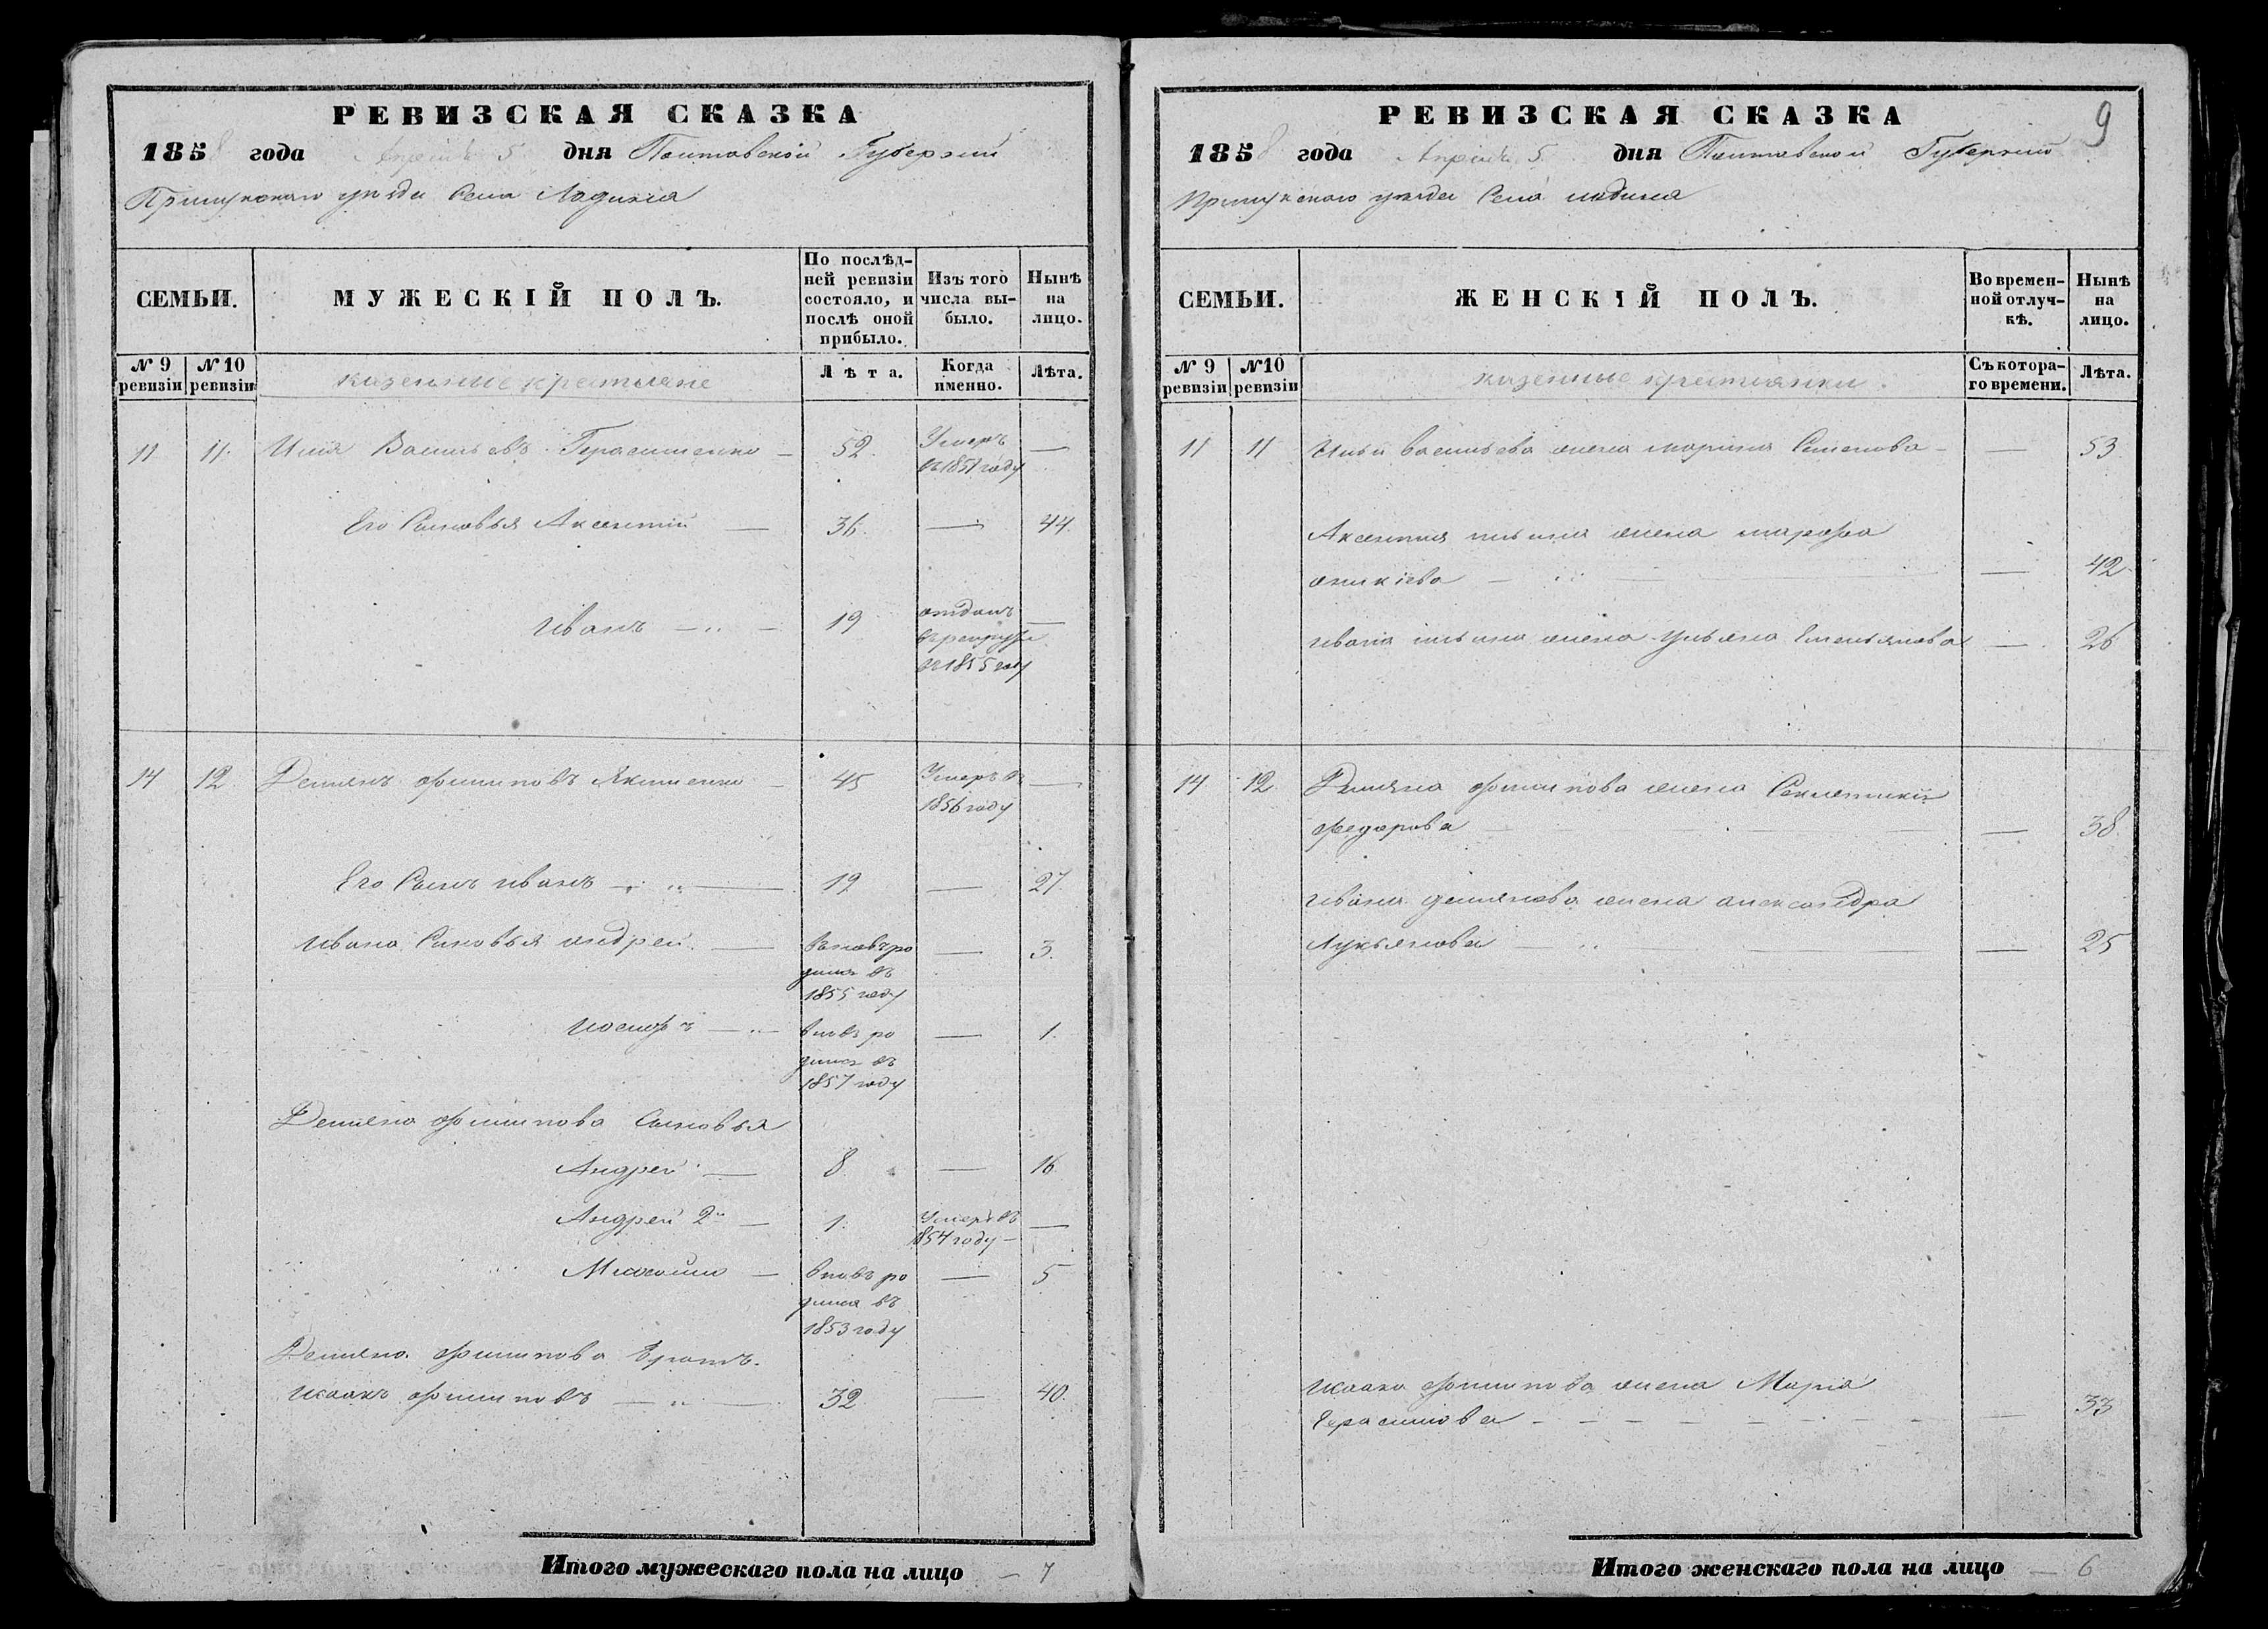 РЕВИЗСКАЯ СКАЗКА
1858 года Апреля 5 дня Полтавской Губернии
Прилукского уезда Села Ладина
СЕМЬИ.
МУЖЕСКІЙ ПОЛЪ.
По послѣд-
ней ревизіи
состояло, и
послѣ оной
прибыло.
Изъ того
числа вы-
было.
Нынѣ
на
лицо.
№ 9
ревизіи
№ 10
ревизіи
казенные крестьяне
Лѣта.
Когда
именно.
Лѣта.
11 11 Илья Васильевъ Герасименко — 52 Умеръ —
въ 1851 году
Его Сыновья Аксентий — 36 — 44
Иванъ — 19 отданъ —
въ рекруты
въ 1855 году
14 12 Демянъ Филиповъ Якименко — 45 Умеръ въ —
1856 году
Его Сынъ Иванъ — 19 — 27
Ивана Сыновья Андрей — вновь ро — 3
дился въ
1855 году
Иосифъ — вновь ро — 1
дился въ
1857 году
Демяна Филипова Сыновья
Андрей — 8 — 16
Андрей 2й — 1 Умеръ въ —
1854 году
— вновь ро — 5
дился въ
1853 году
Демяна Филипова Братъ
Исаакъ Филиповъ — 32 — 40
Итого мужескаго пола на лицо — 7
9
РЕВИЗСКАЯ СКАЗКА
1858 года Апреля 5 дня Полтавской Губернии
Прилукского уезда Села Ладина
СЕМЬИ.
ЖЕНСКІЙ ПОЛЪ.
Во времен-
ной отлуч-
кѣ.
Нынѣ
на
лицо.
№ 9
ревизіи
№ 10
ревизіи
казенные крестьянки
Съ котора-
го времени.
Лѣта.
11 11 Ильи Васильева жена Марина Семенова — — 53
Аксентия Ильина жена Марфа
Аникіева — — 42
Ивана Ильина жена Ульяна Емельянова — 26
14 12 Демяна Филипова жена
Федорова — — 38
Ивана Демянова жена Александра
Лукьянова — — 25
Исаака Филипова жена Марія
Герасимова — — 33
Итого женскаго пола на лицо — 6